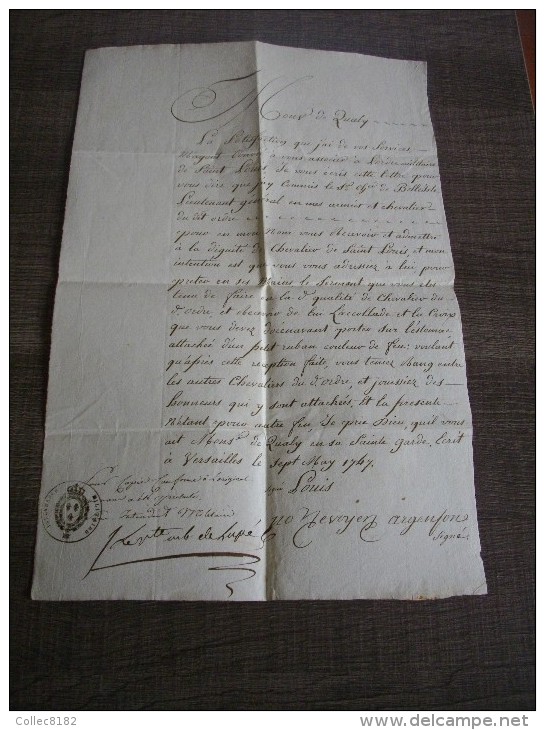 Mons.r de Qualy
La Satisfaction que j'ai de vos Services
M'ayant Convié à vous associer à L'ordre militaire
de Saint Louis, Je vous écris cette lettre pour
vous dire que j'ay Commis le S.r de Bellisle
Lieutenant général en mes armées et chevalier
du dit ordre
pour en mon Nom vous Recevoir et admettre
à la dignité de Chevalier de Saint Louis, et mon
intention est que vous vous adressiez à lui pour
preter en ses Mains le Serment que vous etes
tenu de faire en la d. qualité de Chevalier du
d. ordre et recevoir de lui L'accollade et la Croix
que vous devez dorenavant porter sur l'estomac
attaché d'un petit ruban couleur de feu: voulant
qu'après cette reception faite, vous teniez Rang entre
les autres Chevaliers du d. ordre, et jouissiez des
honneurs qui y sont attachées, Et la presente
N'étant pour autre fin, Je prie Dieu, qu'il vous
ait Mons.r de Qualy en sa Sainte garde, Ecrit
à Versailles le Sept May 1747.
signé Louis
Pour Copie Conforme à L'original
de Voyer d'argenson
signé
Le V.te de Lupé
Collec8182
www.delcampe.net